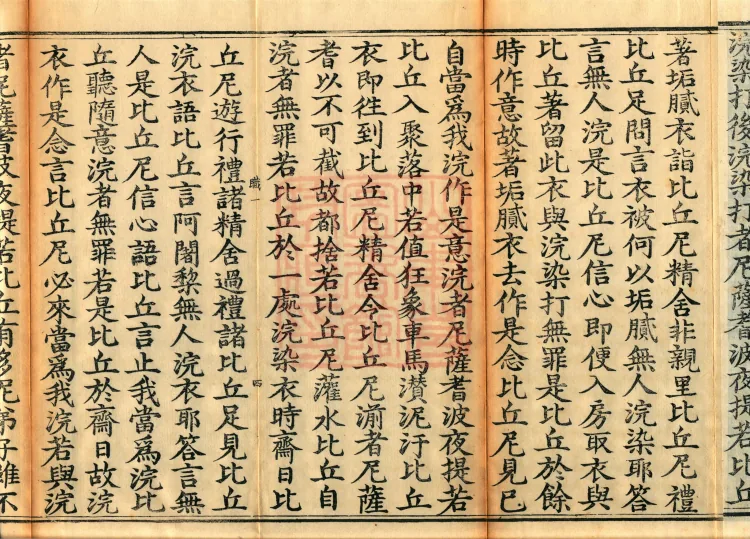 浣染打後浣染打者尼薩耆波夜提若比丘
著垢膩衣詣比丘尼精舍非親里比丘尼禮
比丘足問言衣被何以垢膩無人浣染耶答
言無人浣是比丘尼信心即便入房取衣與
比丘著留此衣與浣染打無罪是比丘於餘
時作意故著垢膩衣去作是念比丘尼見已
自當為我浣作是意浣者尼薩耆波夜提若
比丘入聚落中若值狂象車馬濽泥汙比丘
衣即徃到比丘尼精舍令比丘尼湔者尼薩
耆以不可截故都捨若比丘尼灌水比丘自
浣者無罪若比丘於一處浣染衣時齋日比
職一
四
丘尼遊行禮諸精舍過禮諸比丘足見比丘
浣衣語比丘言阿闍棃無人浣衣耶答言無
人是比丘尼信心語比丘言止我當為浣比
丘聽隨意浣者無罪若是比丘於齋日故浣
衣作是念言比丘尼必來當為我浣若與浣
者尼薩耆波夜提若比丘有多尼弟子雖不